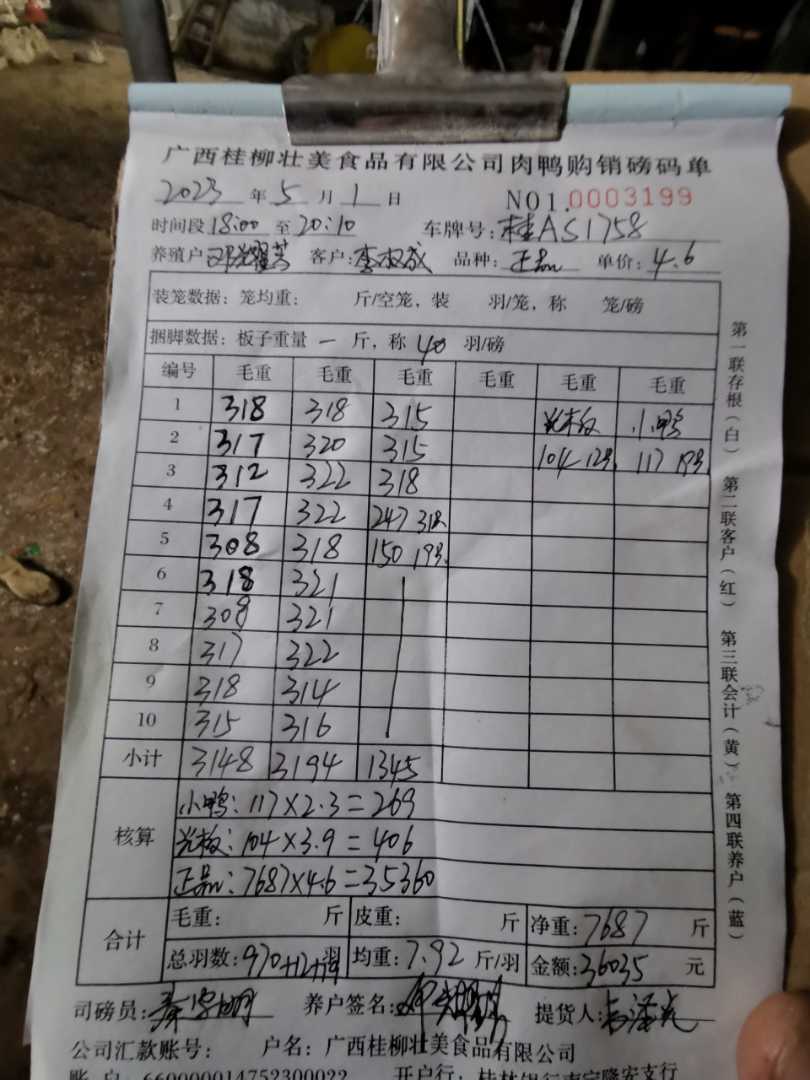 广西桂柳壮美食品有限公司肉鸭购销磅码单
2023 年 5 月 1 日 NO1.0003199
时间段18:00 至 20:10 车牌号:桂AS1758
养殖户 客户: 品种: 正品 单价:4.6
装笼数据: 笼均重: 斤/空笼, 装 羽/笼, 称 笼/磅
捆脚数据: 板子重量 一 斤, 称 40 羽/磅
编号 毛重 毛重 毛重 毛重 毛重 毛重
1 318 318 315 光板 小鸭
2 317 320 315 104 12只 117 19只
3 312 322 318
4 317 322 247 31只
5 308 318 150 19只
6 318 321
7 308 321
8 317 322
9 318 314
10 315 316
小计 3148 3194 1345
核算
小鸭: 117×2.3=269
光板: 104×3.9=406
正品: 7687×4.6=35360
合计
毛重: 斤 皮重: 斤 净重:7687 斤
总羽数:970+12+19羽 均重:7.92 斤/羽 金额:36035 元
司磅员: 养户签名: 提货人:
公司汇款账号: 户名: 广西桂柳壮美食品有限公司
账 户: 660000014752300022 开户行: 桂林银行南宁隆安支行
第一联存根(白) 第二联客户(红) 第三联会计(黄) 第四联养户(蓝)